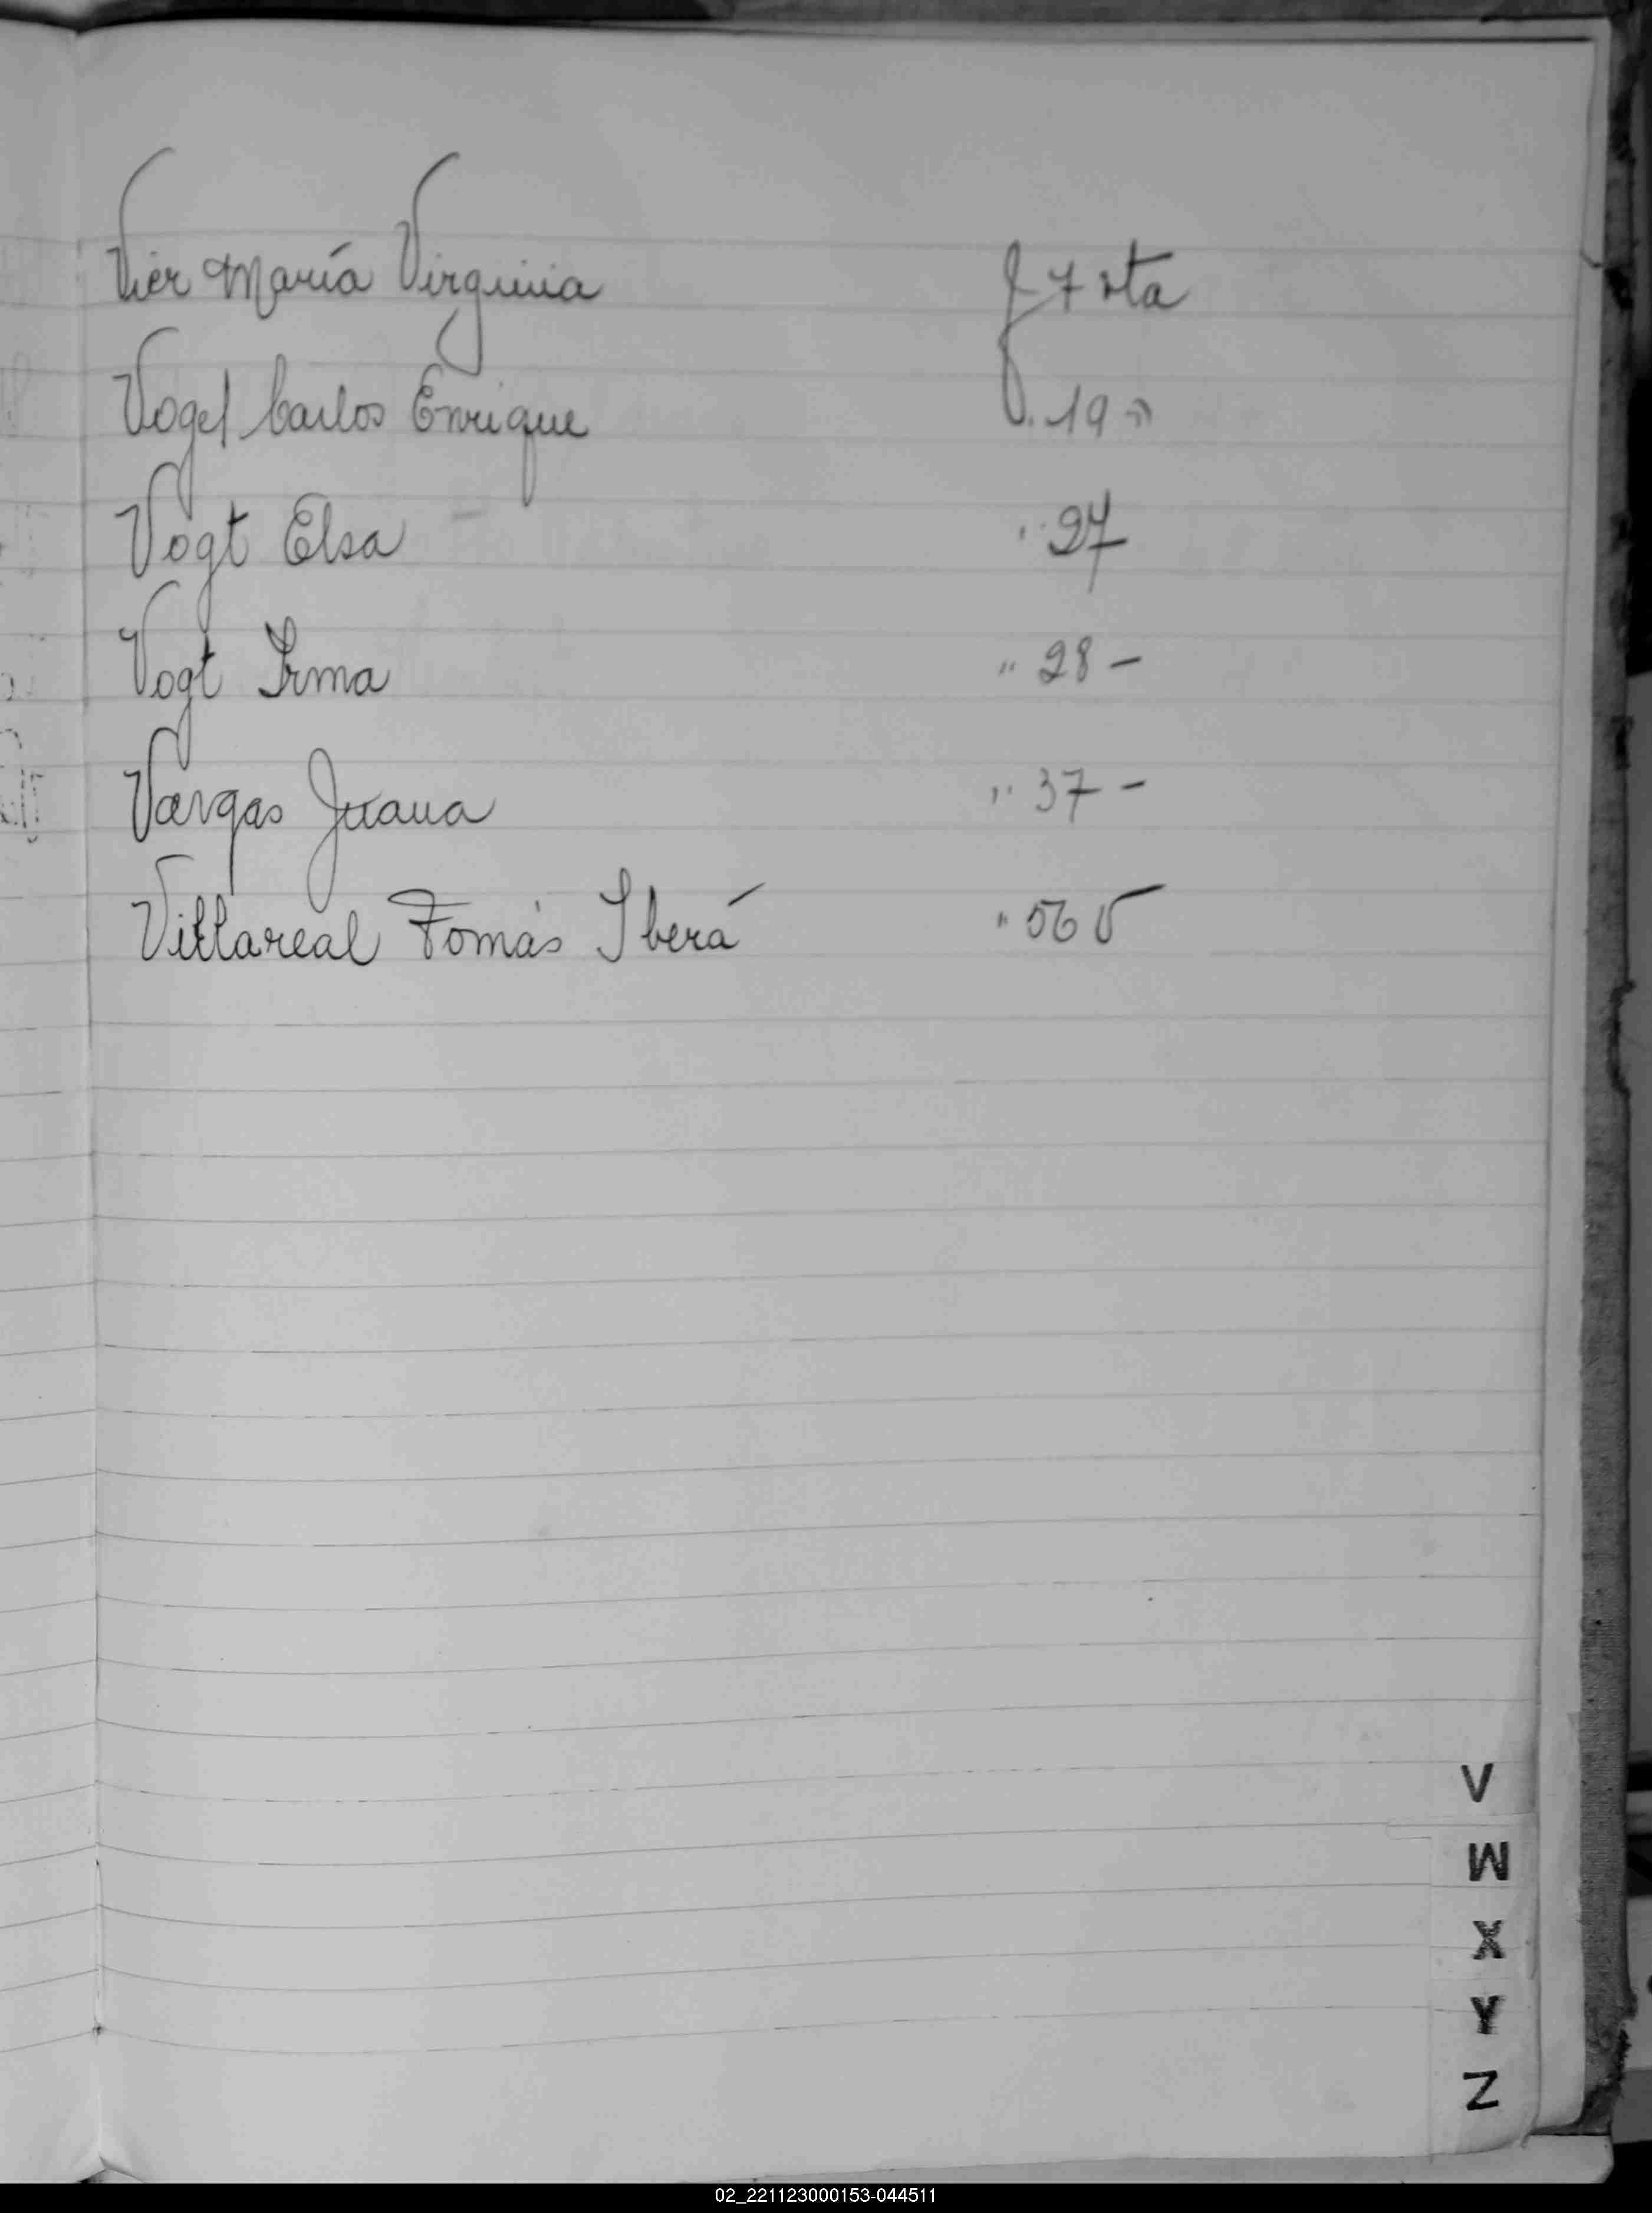 Vier María Virginia f 7 vta
Vogel Carlos Enrique " 19 "
Vogt Elsa " 27
Vogt Irma " 28 –
Vargas Juana " 37 –
Villareal Tomás Iberá " 56 v
V
W
X
Y
Z
02_221123000153-044511